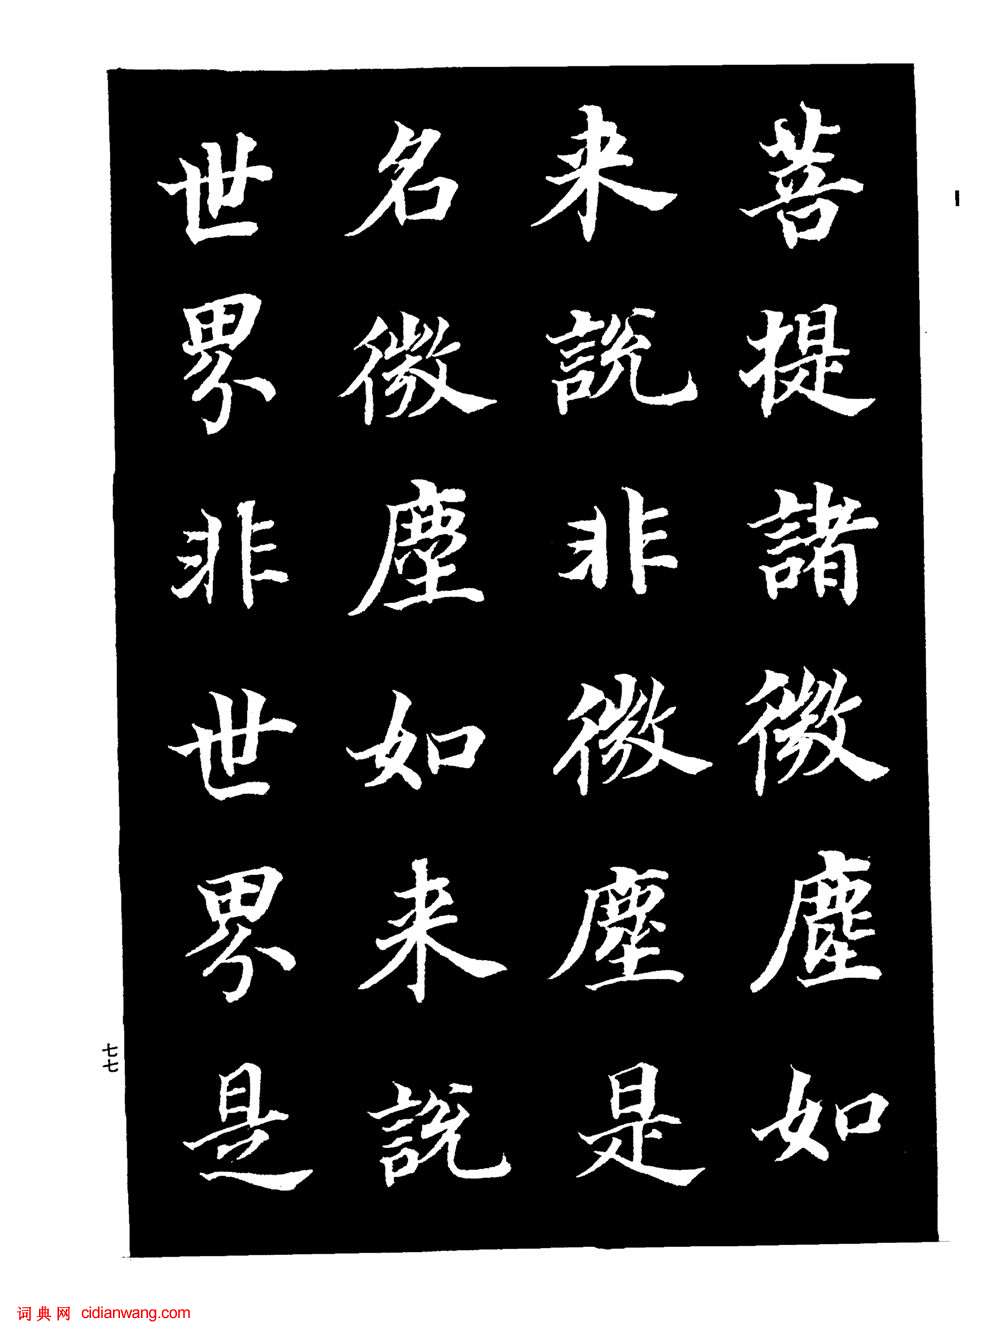 菩提諸微塵如
来說非微塵是
名微塵如来說
世界非世界是
七七
词典网 cidianwang.com